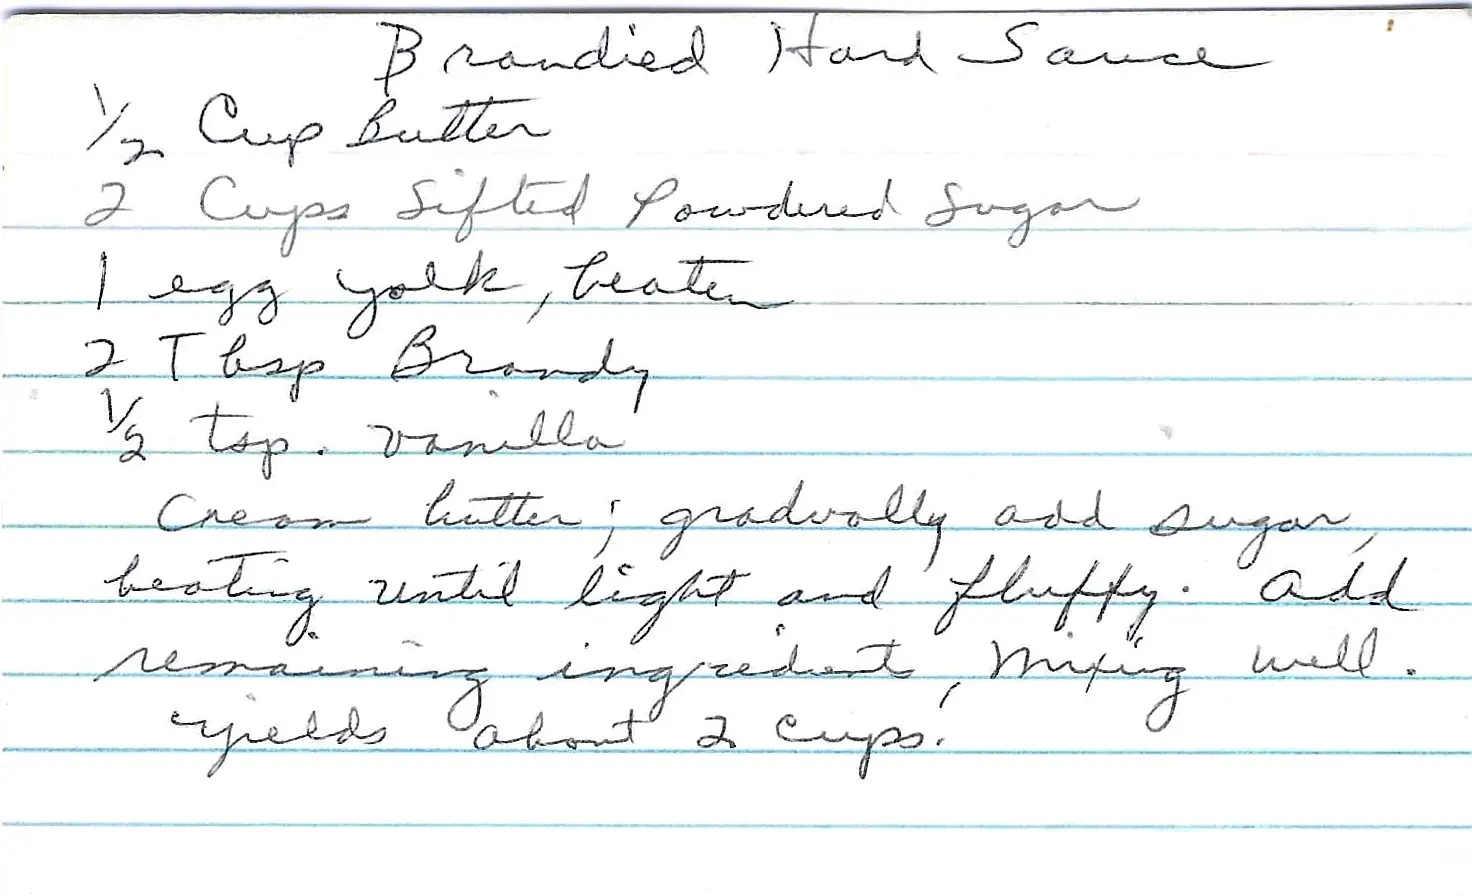 Brandied Hard Sauce
1/2 Cup Butter
2 Cups Sifted Powdered Sugar
1 egg yolk, beaten
2 Tbsp Brandy
1/2 tsp. vanilla
Cream butter; gradually add sugar,
beating until light and fluffy. Add
remaining ingredients, mixing well.
Yields about 2 cups.